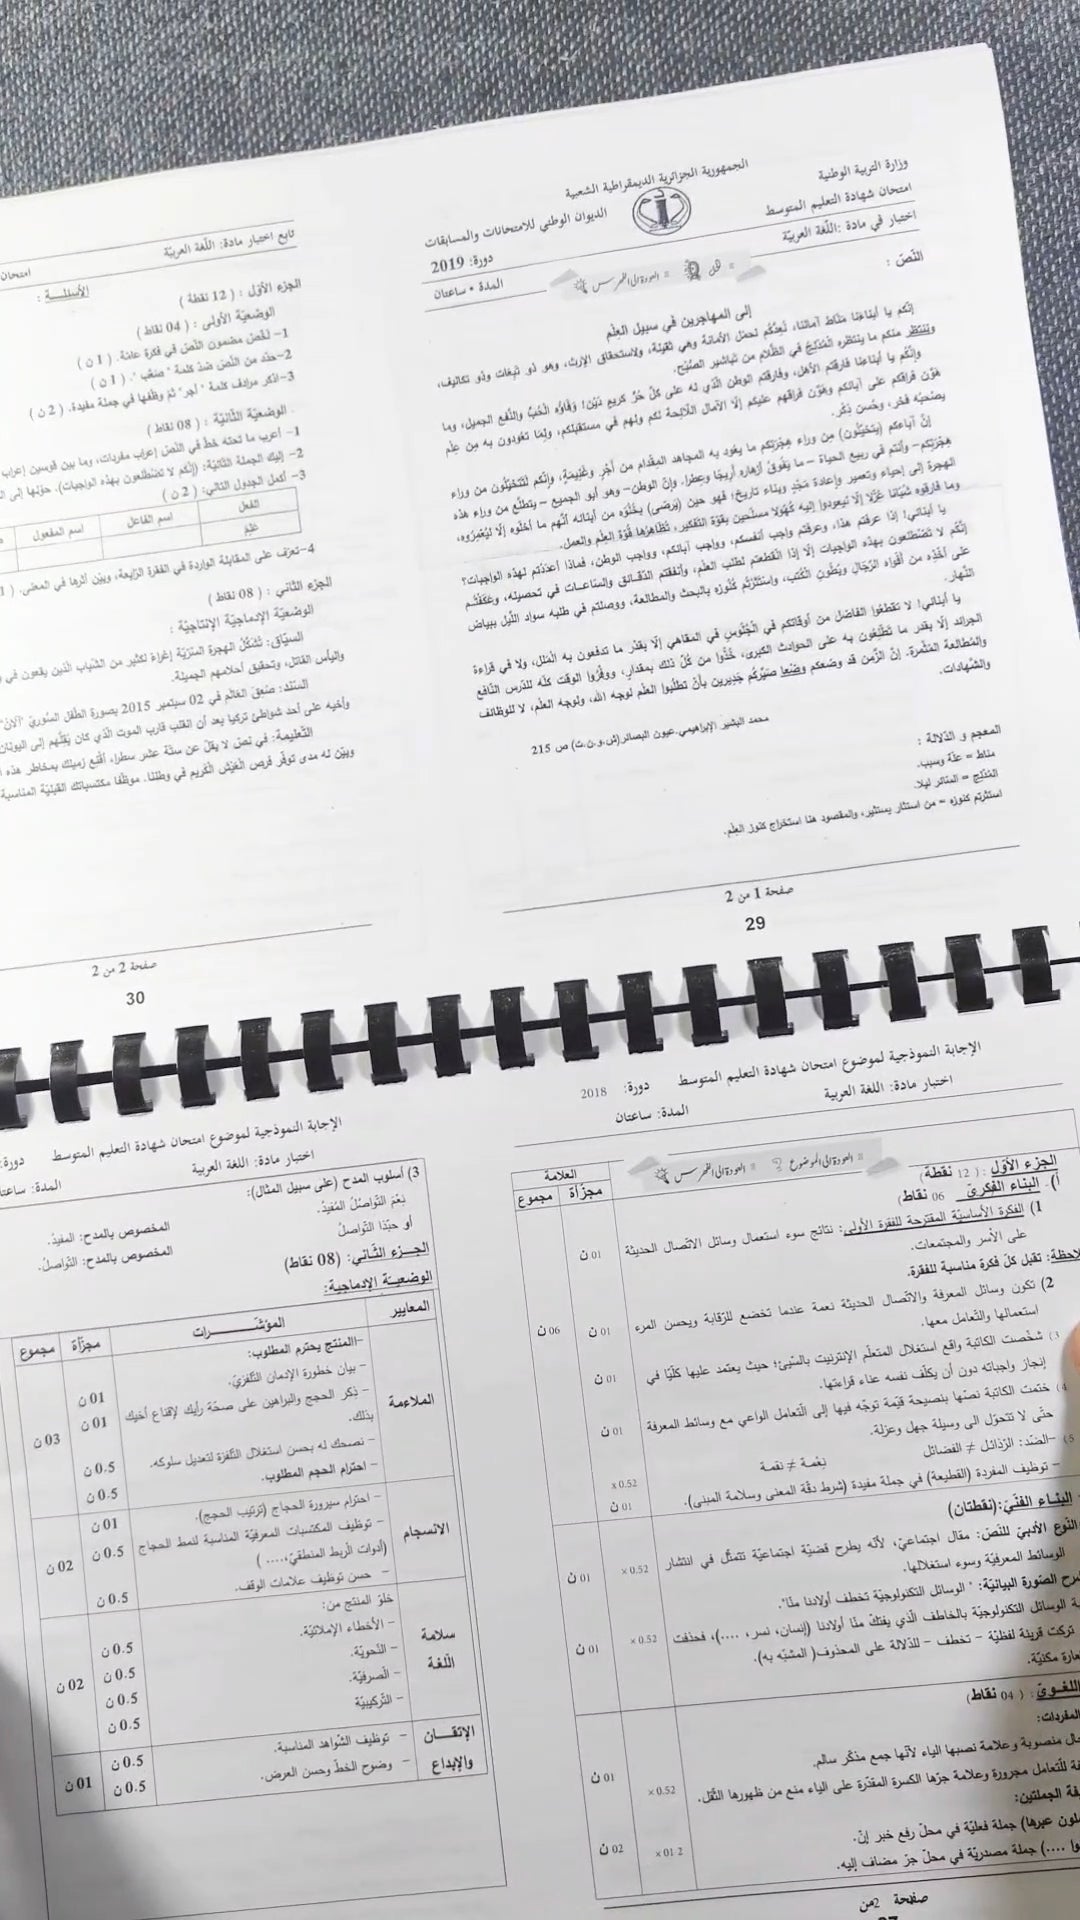 الجمهورية الجزائرية الديمقراطية الشعبية
وزارة التربية الوطنية
الديوان الوطني للامتحانات والمسابقات
امتحان شهادة التعليم المتوسط
دورة: 2019
اختبار في مادة :اللّغة العربيّة
المدة • ساعتان
= العودة الى الفهرس =
النّصّ :
إلى المهاجرين في سبيل العِلْم
إنّكم يا أبناءَنا مَنَاط آمالنا، نُعِدُّكُم لحمْل الأمانة وهي ثقيلة، ولاستحقاق الإرث، وهو ذو تَبِعات وذو تكاليف،
ونَنتَظر منكم ما ينتظره المُدْلِجُ في الظّلام من تباشير الصُّبْح.
وإنّكُم يا أبناءَنا فارقتم الأهل، وفارقتم الوطن الّذي له على كلّ حُرّ كريم دَيْن! وَفَاؤُه الحُبّ والنّفع الجميل، وما
هَوَّن فراقكم على آبائكم وهَوَّن فراقهم عليكم إلّا الآمال اللّائحة لكم ولهم في مستقبلكم، ولِمَا تعودون به مِن عِلْم
يصْحبُه فخر، وحُسن ذِكْر.
إنّ آباءكم (يتخيّلون) مِن وراء هِجْرَتِكم ما يعود به المجاهد المِقْدام من أجْرٍ وغَنِيمَةٍ، وإنّكم لَتَتَخَيَّلُون من وراء
هِجْرَتِكم- وأنتم في ربيع الحياة – ما يَفُوقُ أزهاره أَرِيجًا وعِطرا. وإنّ الوطن- وهو أبو الجميع – يتطلّع من وراء هذه
الهجرة إلى إحياء وتعمير وإعادة مَجْدٍ وبناء تاريخ؛ فهو حين (يَرضَى) بخُلُوّه من أبنائه أنّهم ما أَخلَوه إلّا ليُعْمِرُوه،
وما فارقوه شُبّانا عُزّلا إلّا ليعودوا إليه كُهُولا مسلّحين بقوّة التفكير، تُظَاهِرُها قُوّة العِلْم والعمل.
يا أبنائي! إذا عرفتم هذا، وعرفتم واجب أنفسكم، وواجب آبائكم، وواجب الوطن، فماذا أعددتم لهذه الواجبات؟
إنّكُم لا تضْطلعون بهذه الواجبات إلّا إذا انْقَطعتم لطلب العلم، وأنفقتم الدّقائق والساعات في تحصيله، وعَكَفْتُم
على أخْذِه من أفْواه الرّجال وبُطُونِ الكُتُب، واسْتَثَرْتُم كُنُوزه بالبحث والمطالعة، ووصلتم في طلبه سواد اللّيل ببياض
النّهار.
يا أبنائي! لا تقطعوا الفاضل من أوقاتكم في الجُلُوسِ في المقاهي إلّا بقدْر ما تدفعون به المَلل، ولا في قراءة
الجرائد إلّا بقدر ما تَطَّلِعُون به على الحوادث الكبرى، خُذُوا مِنْ كُلّ ذلك بمقدار، ووفّرُوا الوقت كلّه للدّرس النّافع
والمُطالعة المثمرة. إنّ الزّمن قد وضعكم وضْعا صَيَّرَكُم جَدِيرين بأنْ تطلبوا العلْم لوجه الله، ولوجه العلْم، لا للوظائف
والشّهادات.
محمد البشير الإبراهيمي.عيون البصائر(ش.و.ن.ت) ص 215
المعجم و الدّلالة :
مناط = علّة وسبب.
المُدْلِج = السّائر ليلا.
استثرتم كنوزه – من استثار يستثير، والمقصود هنا استخراج كنوز العِلْم.
صفحة 1 من 2
29
تابع اختبار مادة: اللّغة العربيّة
الأسئلـــة :
الجزء الأوّل : ( 12 نقطة )
الوضعيّة الأولى : ( 04 نقاط )
1- لخّص مضمون النّصّ في فكرة عامّة. ( 1 ن )
2- حدّد من النّصّ ضدّ كلمة " صعّب ". ( 1 ن )
3- اذكر مرادف كلمة " أجر" ثمّ وظّفها في جملة مفيدة. ( 2 ن )
الوضعيّة الثّانية : ( 08 نقاط )
1- أعرب ما تحته خطّ في النّص إعراب مفردات، وما بين قوسين إعراب
2- إليك الجملة التّالية: (إنّكم لا تضطلعون بهذه الواجبات). حوّلها إلى
3- أكمل الجدول التالي: ( 2 ن )
الفعل	اسم الفاعل	اسم المفعول
عَلِمَ
4- تعرّف على المقابلة الواردة في الفقرة الرّابعة، وبيّن أثرها في المعنى.
الجزء الثاني : ( 08 نقاط )
الوضعيّة الإدماجيّة الإنتاجيّة :
السيّاق: تشكّل الهجرة السّرّيّة إغراءً لكثير من الشّباب الّذين يقعون في
واليأس القاتل، وتحقيق أحلامهم الجميلة.
السّند: صُعِق العَالَم في 02 سبتمبر 2015 بصورة الطّفل السّوريّ "آلان"
وأخيه على أحد شواطئ تركيا بعد أن انقلب قارب الموت الذي كان يَقِلُّهم إلى اليونان
التّعليمة: في نصّ لا يقلّ عن ستّة عشر سطرا، أقنع زميلك بمخاطر هذه
وبيّن له مدى توفّر فرص العَيْش الكريم في وطننا. موظّفا مكتسباتك القبليّة المناسبة
صفحة 2 من 2
30
الإجابة النموذجية لموضوع امتحان شهادة التعليم المتوسط دورة: 2018
اختبار مادة: اللغة العربية المدة: ساعتان
= العودة الى الموضوع = العودة الى الفهرس =
العلامة
مجزّأة مجموع
الجزء الأوّل : ( 12 نقطة)
أ). البناء الفكريّ 06 نقاط)
1) الفكرة الأساسيّة المقترحة للفقرة الأولى: نتائج سوء استعمال وسائل الاتّصال الحديثة 01 ن
على الأسر والمجتمعات.
لاحظة: تقبل كلّ فكرة مناسبة للفقرة.
2) تكون وسائل المعرفة والاتّصال الحديثة نعمة عندما تخضع للرّقابة ويحسن المرء 01 ن 06 ن
استعمالها والتّعامل معها.
3) شخّصت الكاتبة واقع استغلال المتعلّم الإنترنيت بالسّيئ؛ حيث يعتمد عليها كليّا في 01 ن
إنجاز واجباته دون أن يكلّف نفسه عناء قراءتها.
4) ختمت الكاتبة نصّها بنصيحة قيّمة توجّه فيها إلى التّعامل الواعي مع وسائط المعرفة 01 ن
حتّى لا تتحوّل الى وسيلة جهل وعزلة.
5) –الضّد: الرّذائل ≠ الفضائل نِعْمة ≠ نقمة 0.52 ×
– توظيف المفردة (القطيعة) في جملة مفيدة (شرط دقّة المعنى وسلامة المبنى). 01 ن
- البناء الفنّيّ:(نقطتان)
النّوع الأدبيّ للنّصّ: مقال اجتماعيّ، لأنّه يطرح قضيّة اجتماعيّة تتمثّل في انتشار 0.52 × 01 ن
الوسائط المعرفيّة وسوء استغلالها.
شرح الصّورة البيانيّة: " الوسائل التكنولوجيّة تخطف أولادنا منّا".
الوسائل التكنولوجيّة بالخاطف الّذي يفتكّ منّا أولادنا (إنسان، نسر، ....)، فحذفت 0.52 × 01 ن
تركت قرينة لفظيّة – تخطف – للدّلالة على المحذوف( المشبّه به).
عارة مكنيّة.
اللّغويّ : ( 04 نقاط)
المفردات:
حال منصوبة وعلامة نصبها الياء لأنّها جمع مذكّر سالم. 01 ن
للتّعامل مجرورة وعلامة جرّها الكسرة المقدّرة على الياء منع من ظهورها الثّقل. 0.52 ×
الجملتين:
جملة فعليّة في محلّ رفع خبر إنّ. 02 ن
....) جملة مصدريّة في محلّ جرّ مضاف إليه. 01 2 ×
صفحة 2من
الإجابة النموذجية لموضوع امتحان شهادة التعليم المتوسط دورة:
اختبار مادة: اللغة العربية
3) أسلوب المدح (على سبيل المثال):
نِعْمَ التّواصلُ المُفيدُ. المخصوص بالمدح: المفيدُ.
أو حبّذا التّواصلُ المخصوص بالمدح: التّواصلُ.
الجـزء الثّاني: (08 نقاط)
الوضعيّة الإدماجية:
المعايير المؤشّـــرات مجزّأة مجموع
–المنتج يحترم المطلوب:
– بيان خطورة الإدمان التّلفزيّ. 01 ن
الملاءمة – ذِكر الحجج والبراهين على صحّة رأيك لإقناع أخيك 01 ن 03 ن
بذلك.
– نصحك له بحسن استغلال التّلفزة لتعديل سلوكه. 0.5 ن
– احترام الحجم المطلوب. 0.5 ن
– احترام سيرورة الحجاج (ترتيب الحجج). 01 ن
الانسجام – توظيف المكتسبات المعرفيّة المناسبة لنمط الحجاج 0.5 ن 02 ن
(أدوات الّربط المنطقيّ،.... )
– حسن توظيف علامات الوقف. 0.5 ن
خلوّ المنتج من:
سلامة – الأخطاء الإملائيّة. 0.5 ن
اللّغة – النّحويّة. 0.5 ن 02 ن
– الصّرفيّة. 0.5 ن
– التّركيبيّة 0.5 ن
الإتقــان – توظيف الشّواهد المناسبة. 0.5 ن
والإبداع – وضوح الخطّ وحسن العرض. 0.5 ن 01 ن